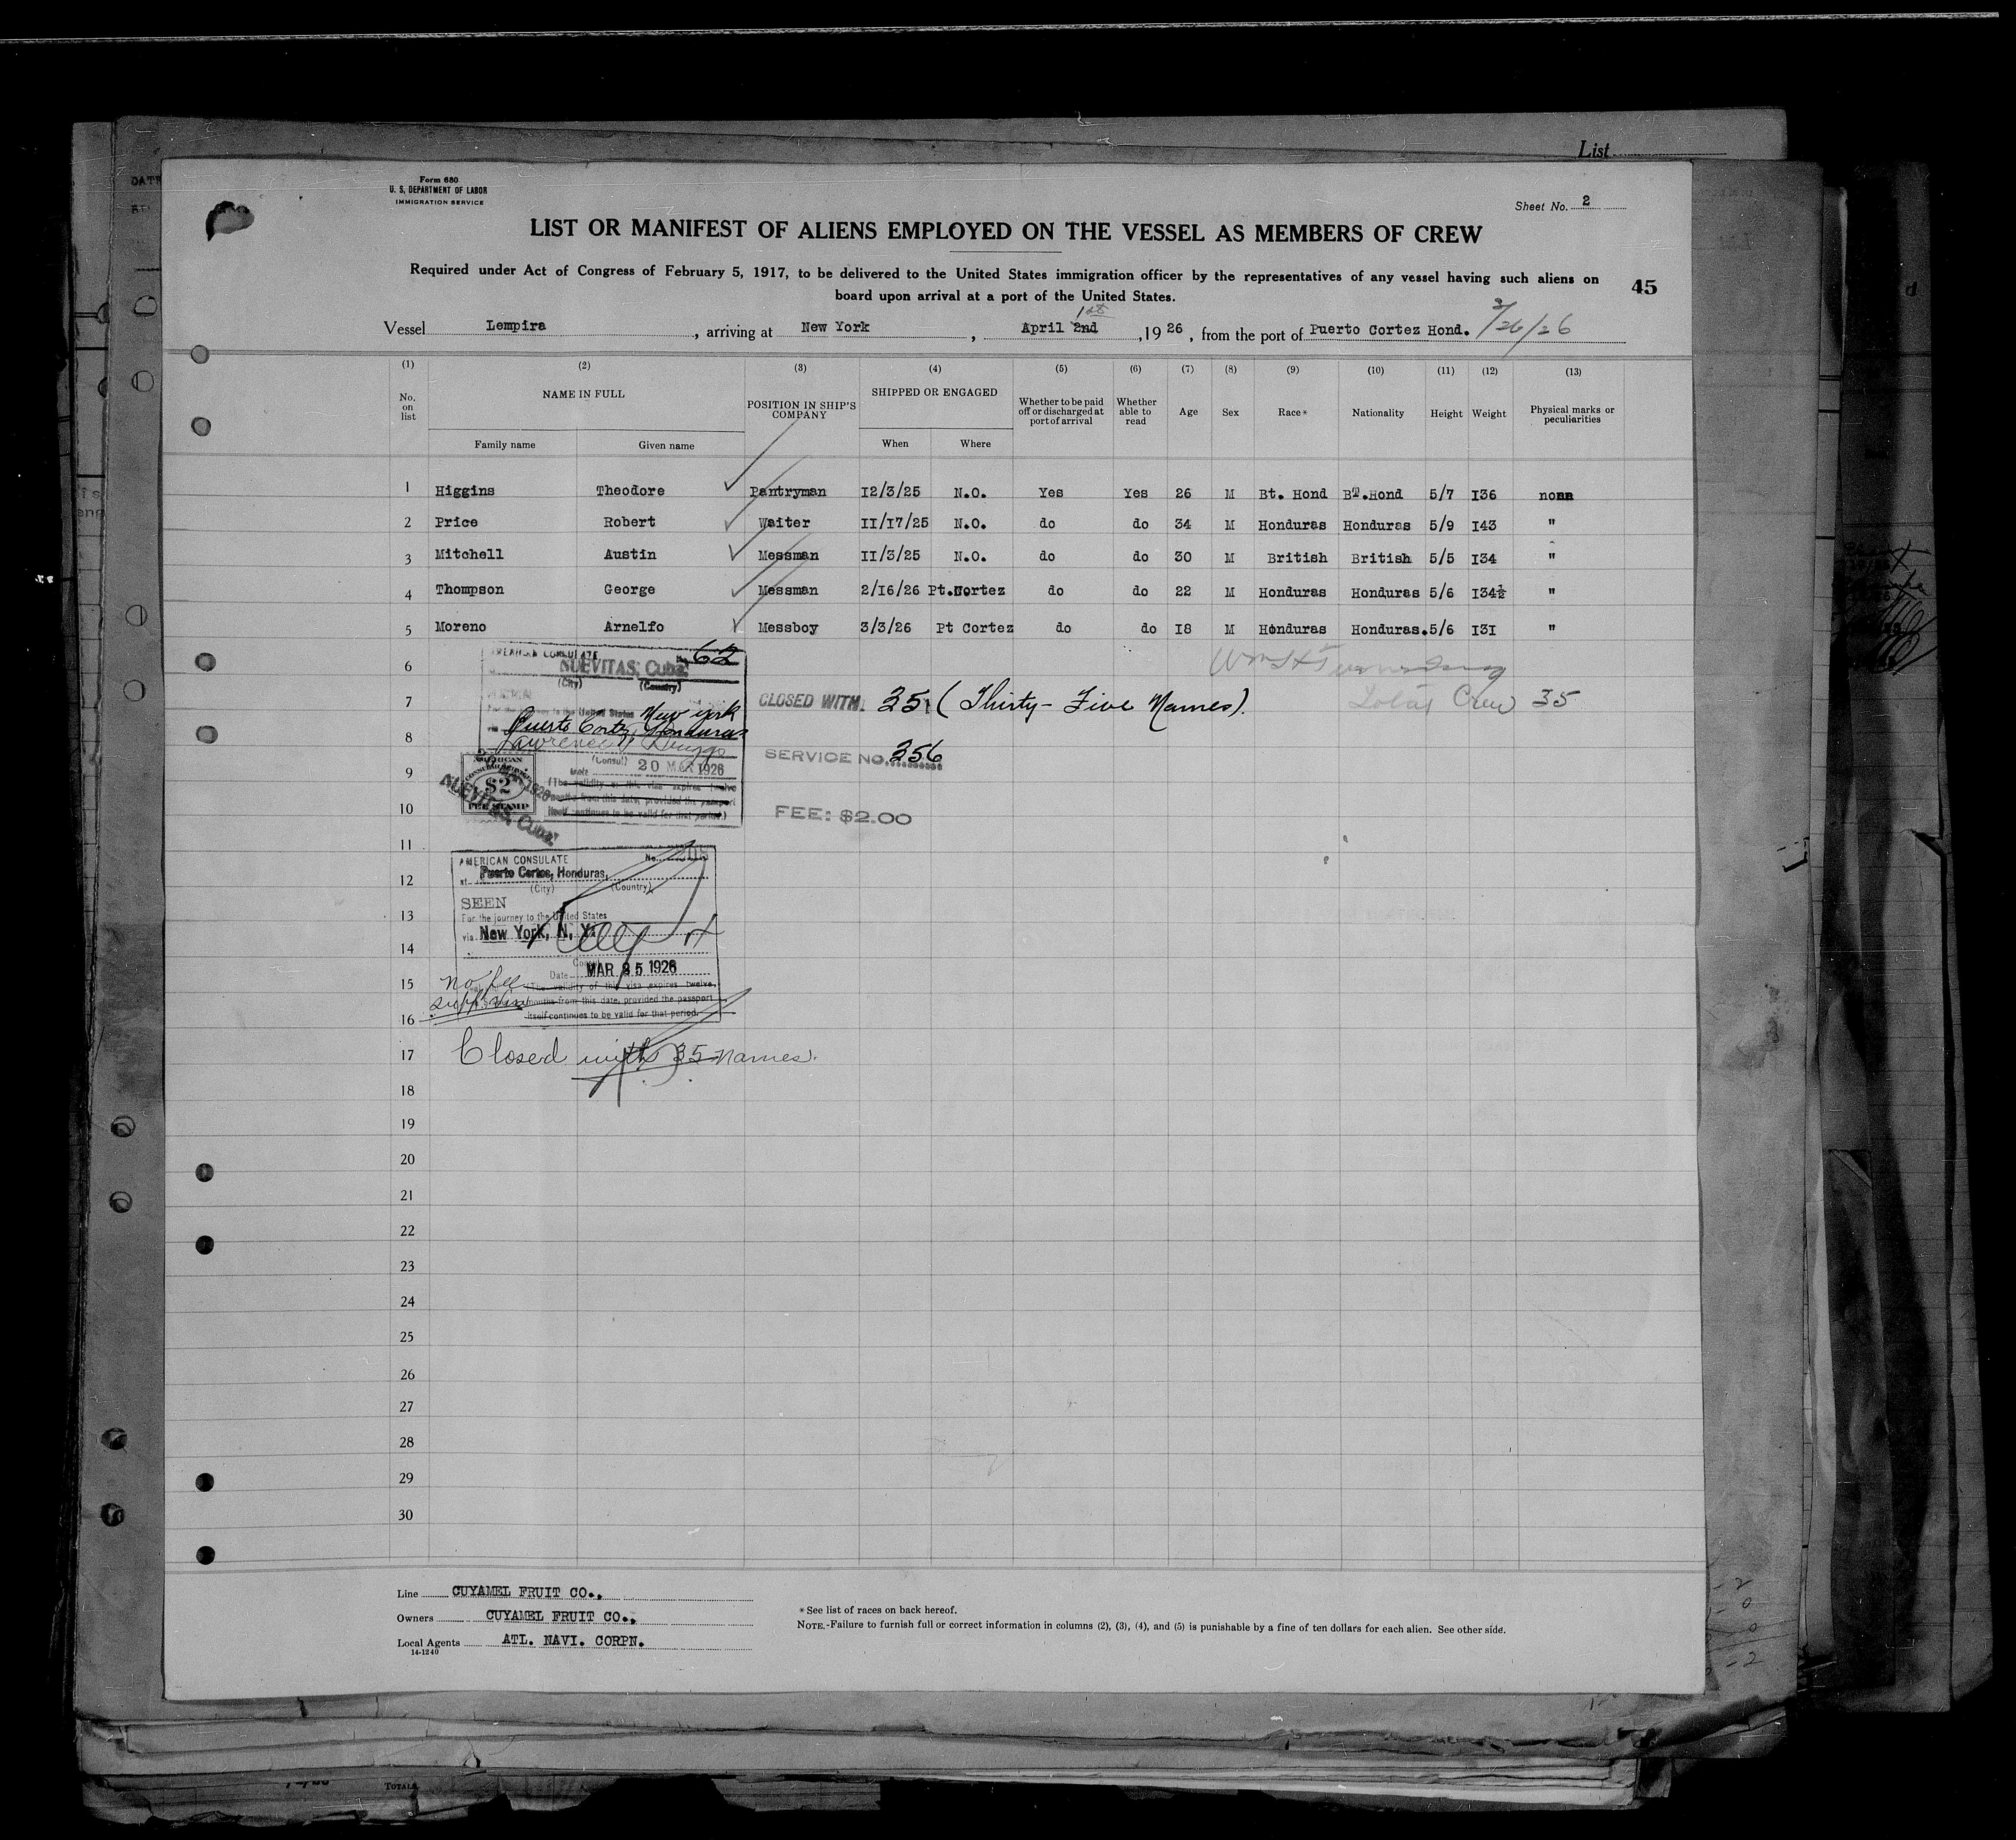 List
Form 680
U. S. DEPARTMENT OF LABOR
IMMIGRATION SERVICE
Sheet No. 2
LIST OR MANIFEST OF ALIENS EMPLOYED ON THE VESSEL AS MEMBERS OF CREW
Required under Act of Congress of February 5, 1917, to be delivered to the United States immigration officer by the representatives of any vessel having such aliens on
board upon arrival at a port of the United States.
45
1st
Vessel Lempira, arriving at New York, April 2nd, 1926, from the port of Puerto Cortez Hond. 3/26/26
(1) (2) (3) (4) (5) (6) (7) (8) (9) (10) (11) (12) (13)
No. on list NAME IN FULL POSITION IN SHIP'S COMPANY SHIPPED OR ENGAGED Whether to be paid off or discharged at port of arrival Whether able to read Age Sex Race* Nationality Height Weight Physical marks or peculiarities
Family name Given name When Where
1 Higgins Theodore Pantryman 12/3/25 N.O. Yes Yes 26 M Bt. Hond BT.Hond 5/7 136 none
2 Price Robert Waiter 11/17/25 N.O. do do 34 M Honduras Honduras 5/9 143 "
3 Mitchell Austin Messman 11/3/25 N.O. do do 30 M British British 5/5 134 "
4 Thompson George Messman 2/16/26 Pt.Cortez do do 22 M Honduras Honduras 5/6 134½ "
5 Moreno Arnelfo Messboy 3/3/26 Pt Cortez do do 18 M Honduras Honduras. 5/6 131 "
6
AMERICAN CONSULATE No. 62
NUEVITAS, Cuba.
(City) (Country)
7
For the journey to the United States
New York
Puerto Cortez, Honduras
CLOSED WITH 35 (Thirty-Five Names).
Total Crew 35
8
Lawrence
(Consul)
SERVICE NO. 356
9
Date 20 MAR 1926
(The validity of this visa expires twelve
months from this date, provided the passport
itself continues to be valid for that period.)
AMERICAN
$2
FEE STAMP
NUEVITAS, Cuba.
10
FEE: $2.00
11
AMERICAN CONSULATE No.
at Puerto Cortes, Honduras,
12
(City) (Country)
SEEN
13
For the journey to the United States
via New York, N. Y.
14
Consul
Date MAR 25 1926
15
no fee
(The validity of this visa expires twelve
months from this date, provided the passport
itself continues to be valid for that period.
16
17 Closed with 35 names.
18
19
20
21
22
23
24
25
26
27
28
29
30
Line CUYAMEL FRUIT CO.,
Owners CUYAMEL FRUIT CO.,
Local Agents ATL. NAVI. CORPN.
14-1240
*See list of races on back hereof.
NOTE.-Failure to furnish full or correct information in columns (2), (3), (4), and (5) is punishable by a fine of ten dollars for each alien. See other side.
TOTALS